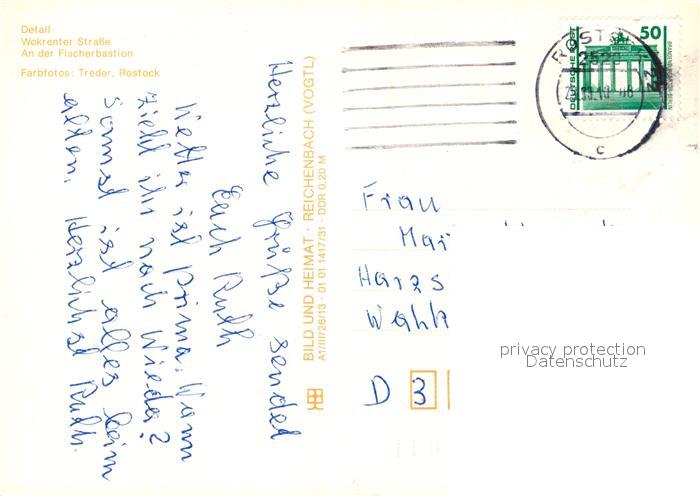 Detail
Wokrenter Straße
An der Fischerbastion
Farbfotos: Treder, Rostock
Herzliche Grüße sendet
Euch Ruth
Wetter ist prima. Wann
zieht ihr nach Wieder?
Sonst ist alles beim
alten. Herzlichst Ruth.
BILD UND HEIMAT · REICHENBACH (VOGTL)
A1/III/26/13 · 01 01 1417/31 · DDR 0,20 M
DEUTSCHE POST
50
2520
c
Frau
Mar
Harzs
Wahl
D 3
privacy protection
Datenschutz